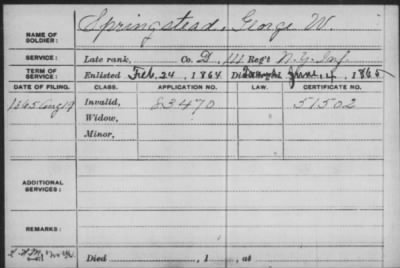 NAME OF SOLDIER: Springstead, George W.
SERVICE: Late rank, Co. D, 111 Reg't N.Y. Inf.
TERM OF SERVICE: Enlisted Feb. 24, 1864 Discharged June 4, 1865
DATE OF FILING. CLASS. APPLICATION NO. LAW. CERTIFICATE NO.
1865 Aug 19 Invalid, 83470 51502
Widow,
Minor,
ADDITIONAL SERVICES:
REMARKS:
Died , 1 , at